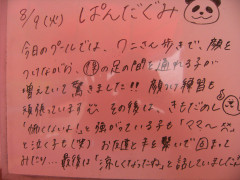 8/9(火) ぱんだぐみ
今日のプールでは、ワニさん歩きで、顔を
つけながら、の足の間を通れる子が
増えていて驚きました!! 顔つけ練習も
頑張っています。その後は、きもだめし
「怖くないよ!」と強がっている子も「ママ〜」
と泣く子も(笑) お友達と手を繋いで回まし
みたり…最後は「涼しくなったね」と話していました